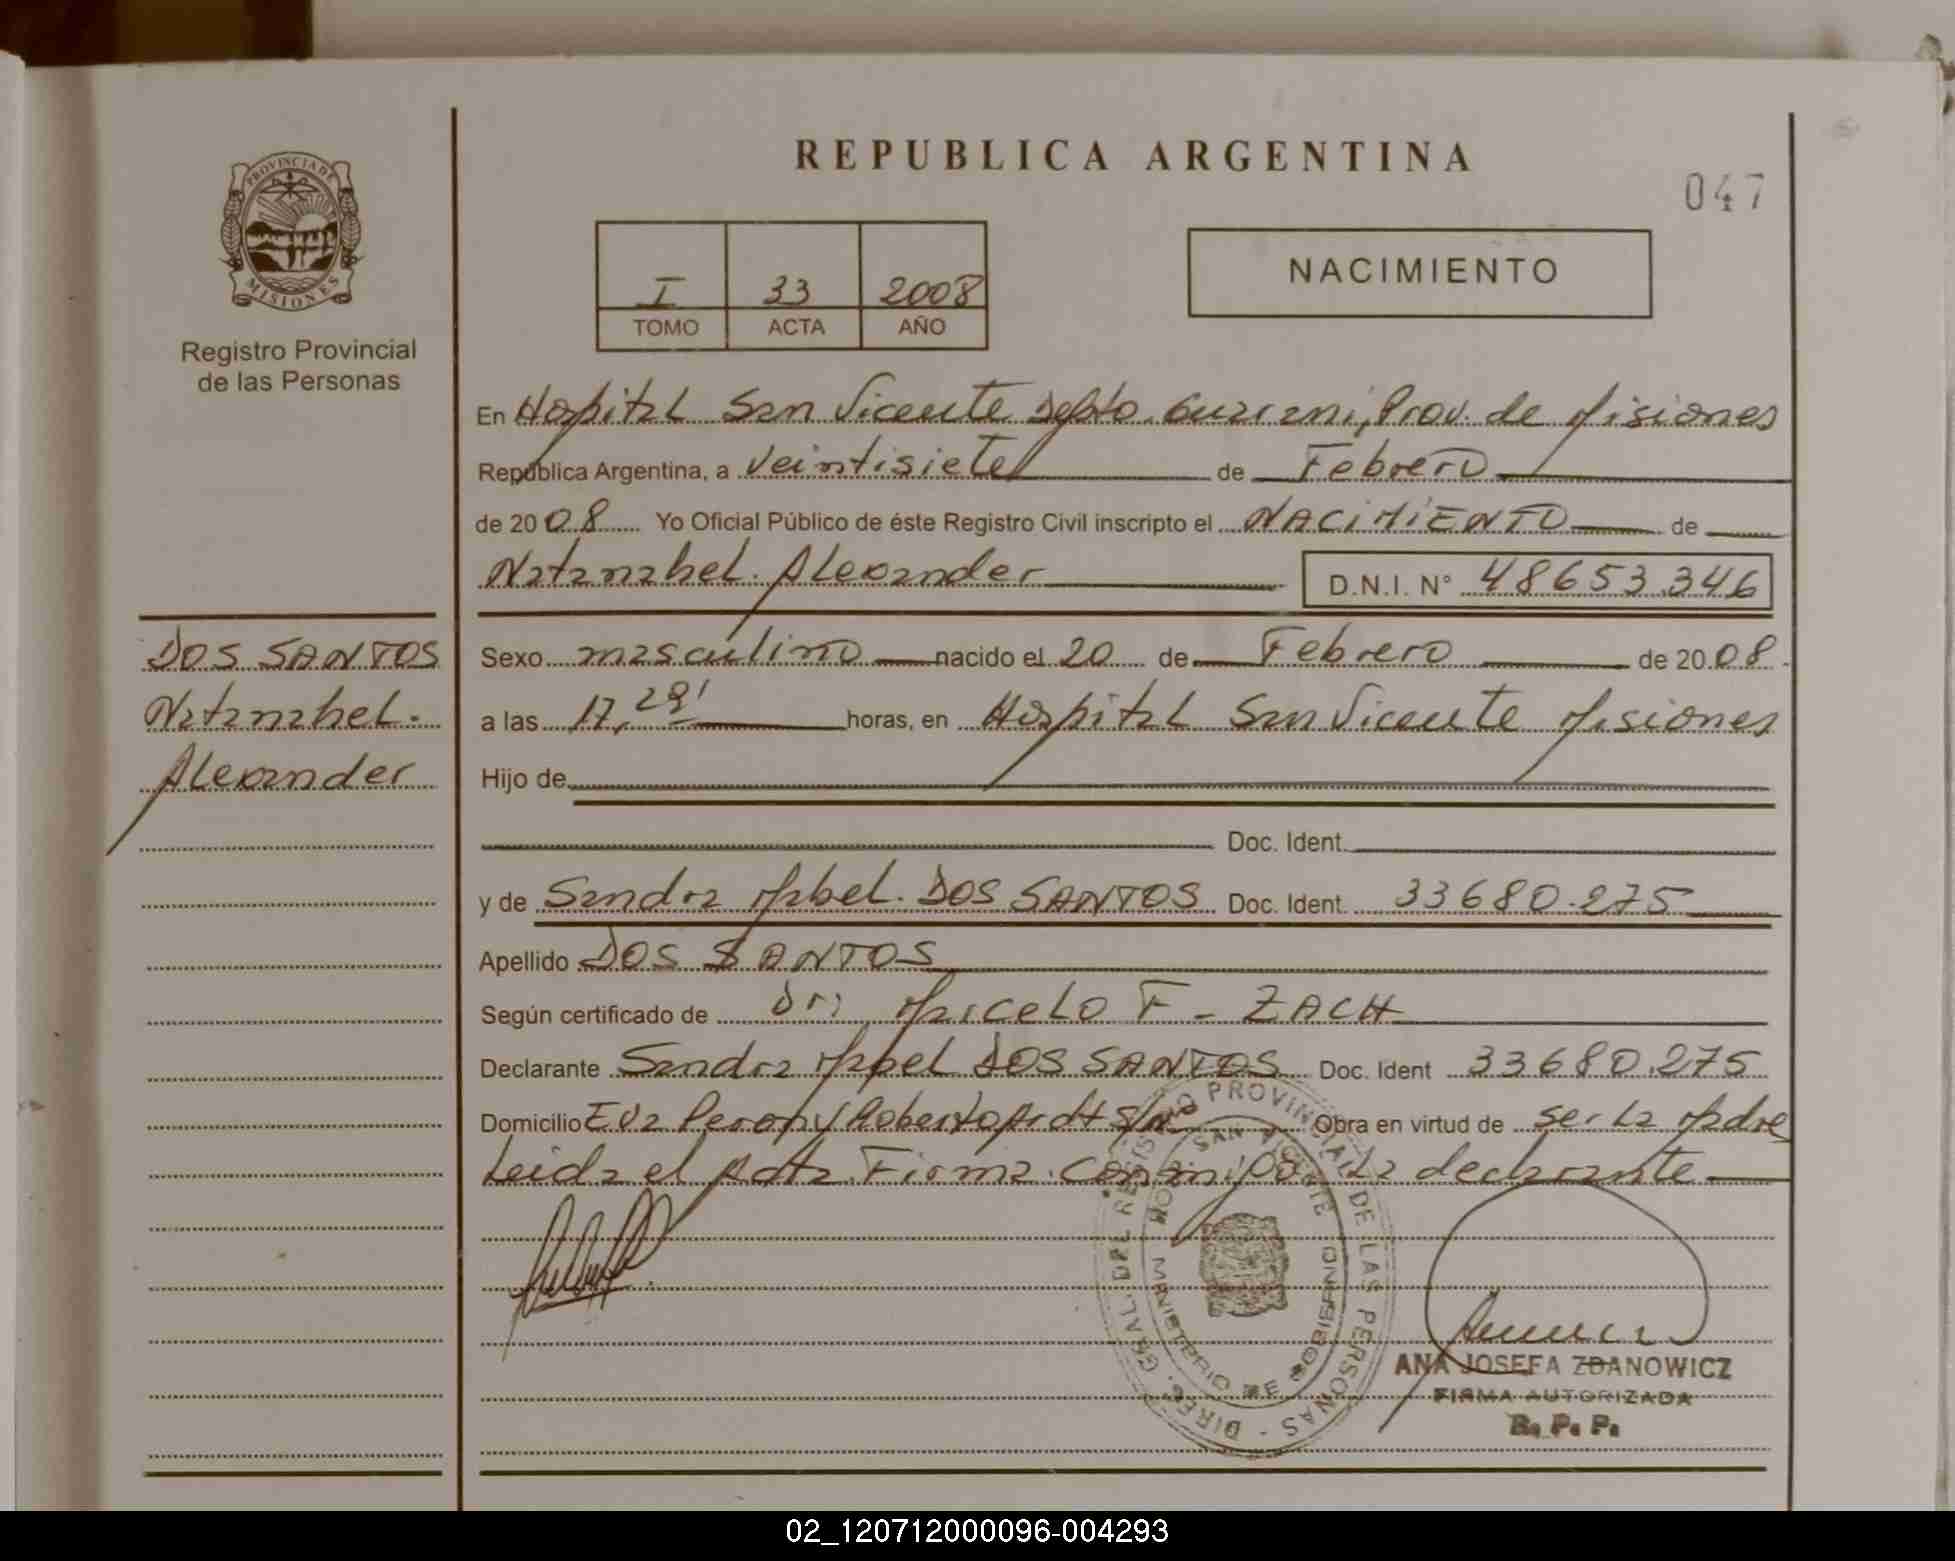 REPUBLICA ARGENTINA
047
PROVINCIA DE
MISIONES
Registro Provincial
de las Personas
I 33 2008
TOMO ACTA AÑO
NACIMIENTO
En Hospital San Vicente Depto. Guarani, Prov. de Misiones
República Argentina, a veintisiete de Febrero
de 2008 Yo Oficial Público de éste Registro Civil inscripto el NACIMIENTO de
Natanahel. Alexander D.N.I. N° 48653.346
DOS SANTOS
Natanahel.
Alexander
Sexo masculino nacido el 20 de Febrero de 2008
a las 17,28' horas, en Hospital San Vicente Misiones
Hijo de
Doc. Ident.
y de Sandra Mabel. DOS SANTOS Doc. Ident. 33680.275
Apellido DOS SANTOS
Según certificado de Dr; Marcelo F - ZACH
Declarante Sandra Mabel DOS SANTOS Doc. Ident 33680.275
Domicilio Eva Peron y Roberto Ardt S/N Obra en virtud de ser la Madre
Leida el Acta. Firma. Conmigo La declarante
DIREC. GRAL. DEL REGISTRO PROVINCIAL DE LAS PERSONAS -
SAN VICENTE
MINISTERIO DE GOBIERNO
ANA JOSEFA ZDANOWICZ
FIRMA AUTORIZADA
R. P. P.
02_120712000096-004293